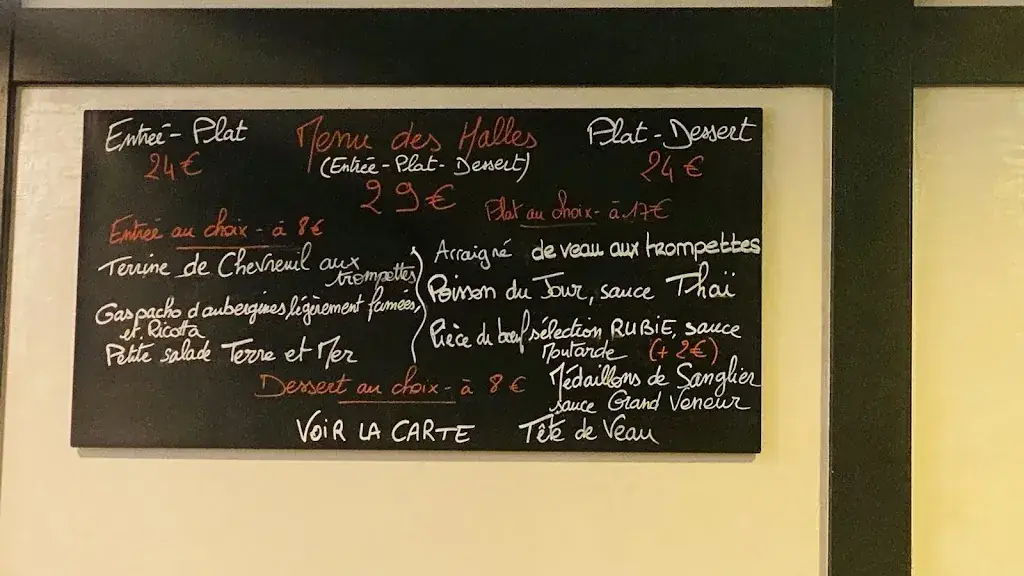 Entrée - Plat
24€
Menu des Halles
(Entrée - Plat - Dessert)
29€
Plat - Dessert
24€
Entrée au choix - à 8€
Terrine de Chevreuil aux
trompettes
Gaspacho d'aubergines légèrement fumées,
et Ricotta
Petite salade Terre et Mer
Plat au choix - à 17€
Arraigné de veau aux trompettes
Poisson du Jour, sauce Thaï
Pièce du bœuf sélection RUBIE, sauce
Moutarde (+ 2€)
Médaillons de Sanglier
sauce Grand Veneur
Tête de Veau
Dessert au choix - à 8€
VOIR LA CARTE